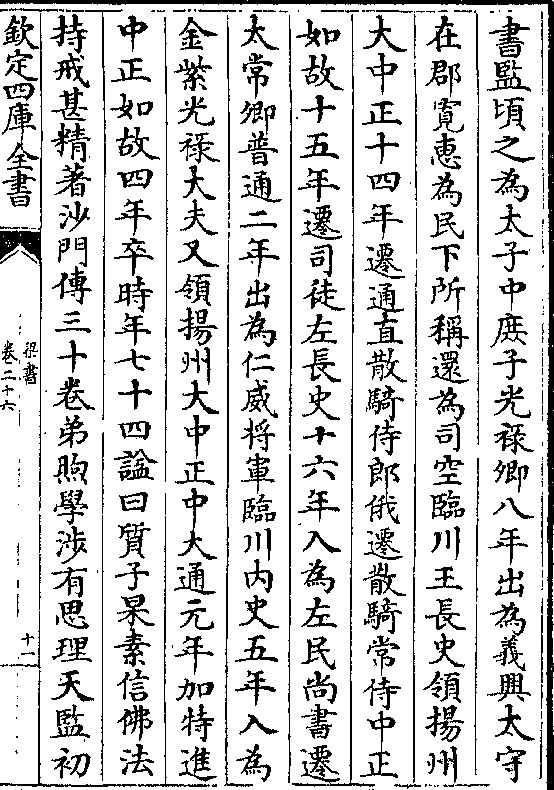 書監頃之為太子中庶子光祿卿八年出為義興太守
在郡寛恵為民下所稱還為司空臨川王長史領揚州
大中正十四年遷通直散騎侍郎俄遷散騎常侍中正
如故十五年遷司徒左長史十六年入為左民尚書遷
太常卿普通二年出為仁威將軍臨川内史五年入為
金紫光祿大夫又領揚州大中正中大通元年加特進
中正如故四年卒時年七十四諡曰質子杲素信佛法
持戒甚精著沙門傳三十卷弟煦學涉有思理天監初
欽定四庫全書
梁書
卷二十六
十一